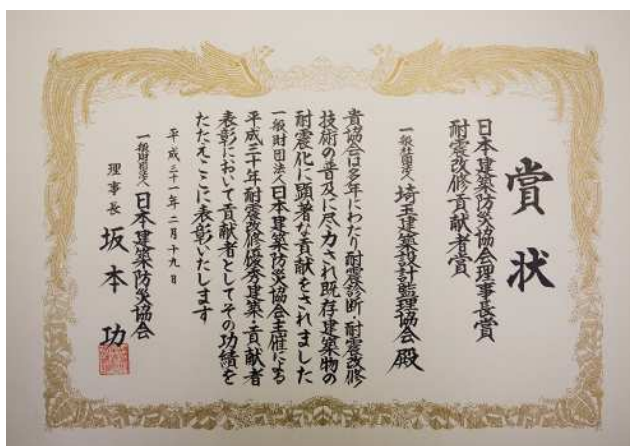 賞状
日本建築防災協会理事長賞
耐震改修貢献者賞
一般社団法人 埼玉建築設計監理協会 殿
貴協会は多年にわたり耐震診断・耐震改修
技術の普及に尽力され既存建築物の
耐震化に顕著な貢献をされました
一般財団法人日本建築防災協会主催による
平成三十年耐震改修優秀建築・貢献者
表彰において貢献者としてその功績を
たたえここに表彰いたします
平成三十一年二月十九日
一般財団法人 日本建築防災協会
理事長 坂本 功